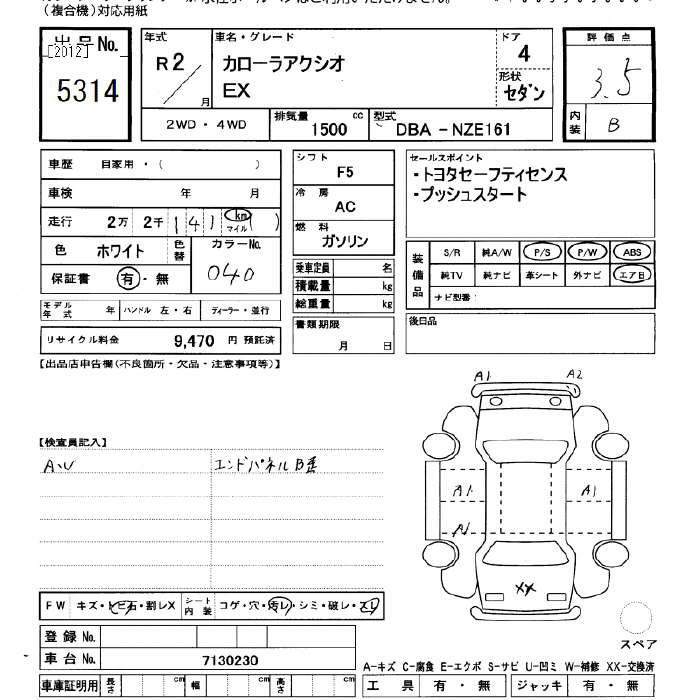 (複合機)対応用紙
出品No.
[2012]
5314
年式
R2
月
車名・グレード
カローラアクシオ
EX
ドア
4
形状
セダン
2WD・4WD
排気量
1500
cc
型式
DBA - NZE161
評価点
3.5
内装
B
車歴 自家用・( )
車検 年 月
走行 2万 2千 1 4 1
km
マイル
色 ホワイト 色替
カラーNo.
040
保証書 有・無
モデル年式 年 ハンドル 左・右 ディーラー・並行
リサイクル料金 9,470 円 預託済
シフト
F5
冷房
AC
燃料
ガソリン
乗車定員 名
積載量 kg
総重量 kg
書類期限
月 日
セールスポイント
・トヨタセーフティセンス
・プッシュスタート
装備品
S/R 純A/W P/S P/W ABS
純TV 純ナビ 革シート 外ナビ エアB
ナビ型番
後日品
【出品店申告欄(不良箇所・欠品・注意事項等)】
【検査員記入】
A・U
エンドパネルB歪
A1
A2
A1
A1
A1
XX
FW キズ・トビ石・割レX シート内装 コゲ・穴・汚レ・シミ・破レ・スレ
登録No.
車台No. 7130230
車庫証明用 長さ cm 幅 cm 高さ cm
スペア
A-キズ C-腐食 E-エクボ S-サビ U-凹ミ W-補修 XX-交換済
工具 有・無 ジャッキ 有・無